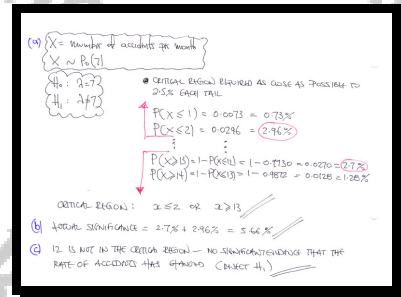 (a) X = number of accidents per month
X ~ Po(7)
H₀: λ=7
H₁: λ≠7
● CRITICAL REGION REQUIRED AS CLOSE AS POSSIBLE TO
2.5% EACH TAIL
P(X ≤ 1) = 0.0073 = 0.73%
P(X ≤ 2) = 0.0296 = 2.96%
P(X ≥ 13) = 1 - P(X≤12) = 1 - 0.9730 = 0.0270 = 2.7%
P(X ≥ 14) = 1 - P(X≤13) = 1 - 0.9872 = 0.0128 = 1.28%
CRITICAL REGION: x ≤ 2 OR x ≥ 13
(b) ACTUAL SIGNIFICANCE = 2.7% + 2.96% = 5.66%
(c) 12 IS NOT IN THE CRITICAL REGION — NO SIGNIFICANT EVIDENCE THAT THE
RATE OF ACCIDENTS HAS CHANGED (REJECT H₁)